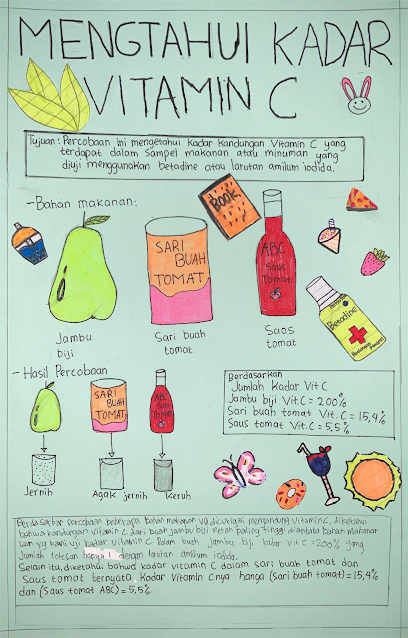 MENGTAHUI KADAR
VITAMIN C
Tujuan: Percobaan ini mengetahui kadar kandungan Vitamin C yang
terdapat dalam sampel makanan atau minuman yang
diuji menggunakan betadine atau larutan amilum iodida.
- Bahan makanan:
BOOK
SARI
BUAH
TOMAT
ABC
Saus
TOMAT
Betadine
Jambu
biji
Sari buah
tomat
Saos
tomat
- Hasil Percobaan
SARI
BUAH
TOMAT
ABC
Jernih
Agak jernih
Keruh
Berdasarkan
Jumlah kadar Vit C
Jambu biji Vit.C = 200%
Sari buah tomat Vit.C = 15,4%
Saus tomat Vit.C = 5,5%
Berdasarkan percobaan beberapa bahan makanan yg dicurigai mengandung Vitamin C, diketahui
bahwa kandungan vitamin C dari buah jambu biji paling tinggi diantara bahan makanan
lain yg kami uji kadar vitamin C Dalam buah jambu biji kadar vit C = 200% yang
Jumlah tetesan hanya 1 dengan larutan amilum iodida.
Selain itu, diketahui bahwa kadar vitamin C dalam sari buah tomat dan
Saus tomat ternyata kadar Vitamin C nya hanya (Sari buah tomat) = 15,4%
dan (Saus tomat ABC) = 5,5%